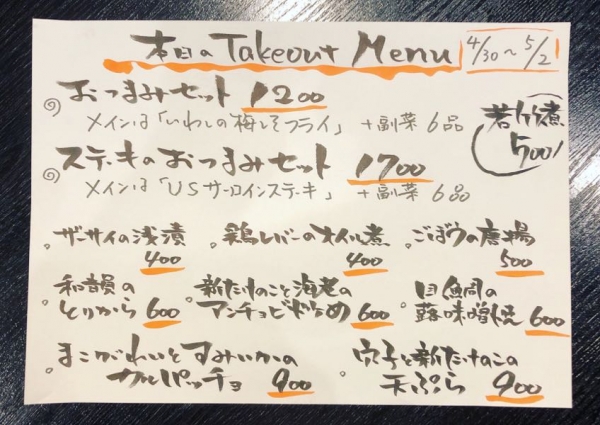 本日のTakeout Menu
4/30〜5/2
おつまみセット 1200
メインは「いわしの梅しそフライ」 +副菜 6品
若竹煮
500
ステーキのおつまみセット 1700
メインは「USサーロインステーキ」 +副菜 6品
ザーサイの浅漬
400
鶏レバーのオイル煮
400
ごぼうの唐揚
500
和韻の
とりから 600
新たけのこと海老の
アンチョビ炒め 600
目鯛の
蕗味噌焼 600
まこがれいとすみいかの
カルパッチョ 900
穴子と新たけのこの
天ぷら 900